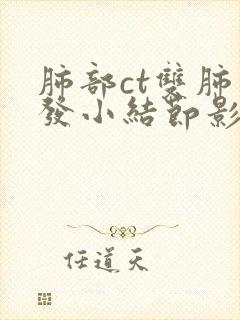 肺部ct雙肺
發小結節影
任道天